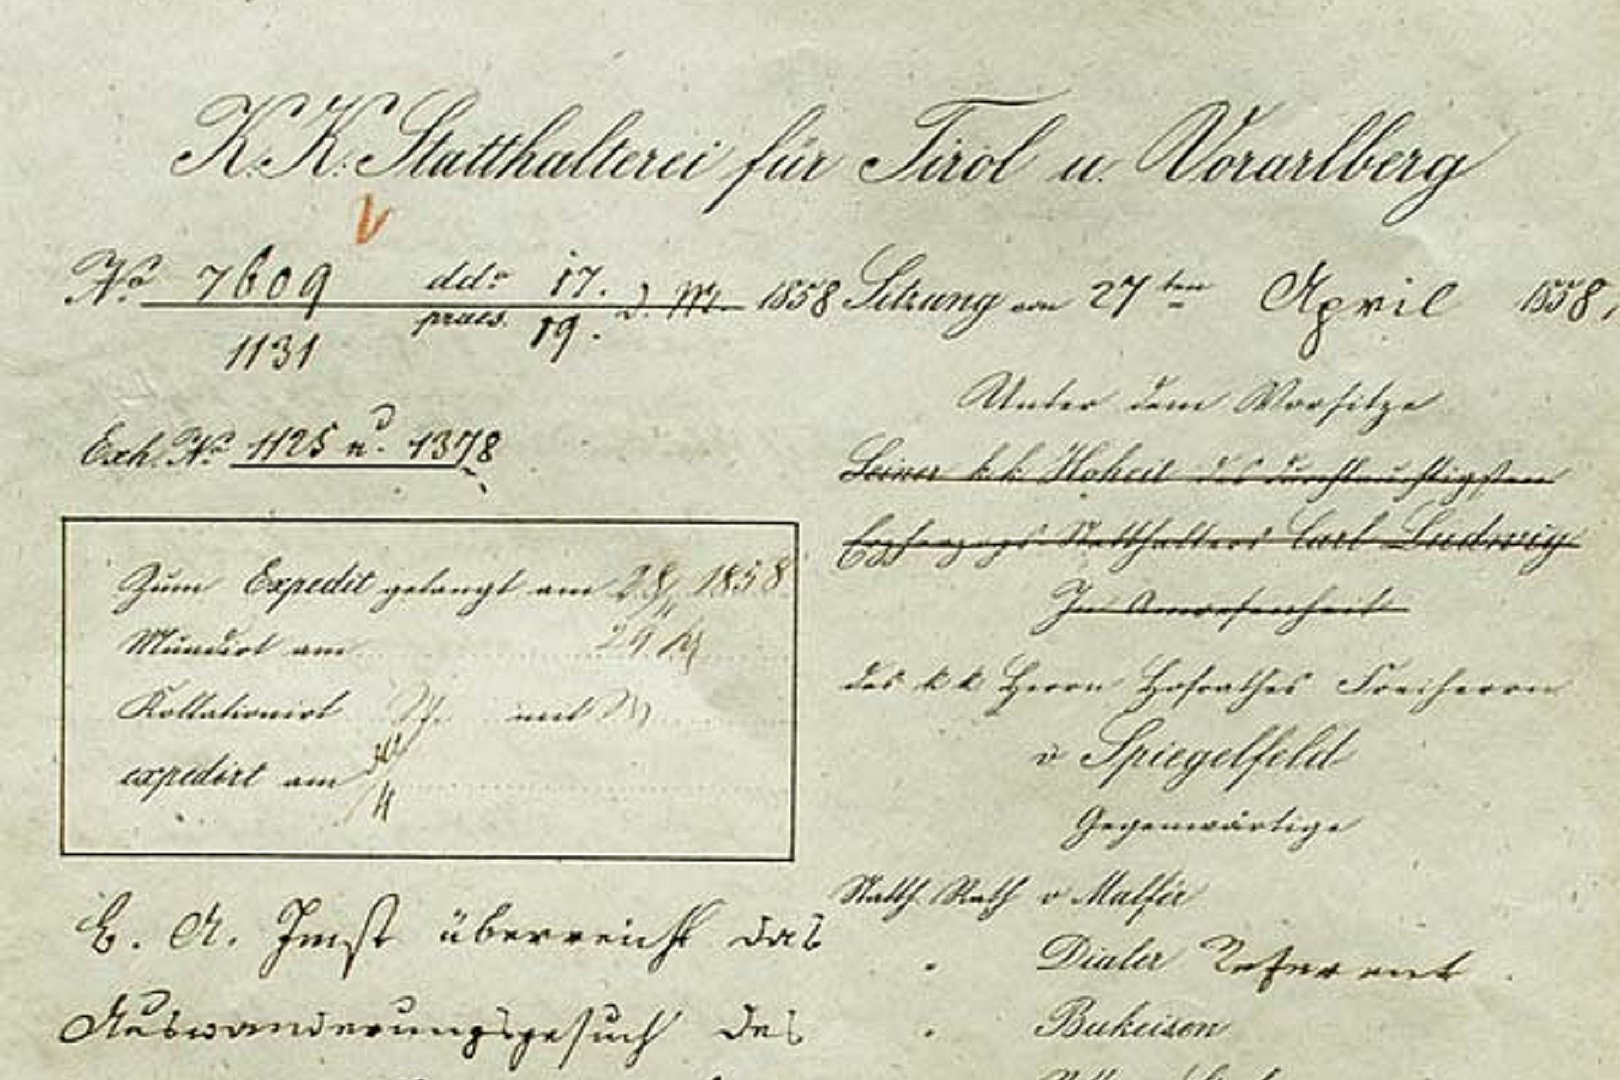 K. K. Statthalterei für Tirol u. Vorarlberg
No. 7609 ddo 17. d. M. 1858
praes. 19.
1131
Exh. No. 1125 u. 1378
Zum Expedit gelangt am 28/4 1858
Mundirt am 29.
Kollationirt mit
expedirt am 30/4
B. A. Imst überreicht das
Auswanderungsgesuch des
Sitzung vom 27ten April 1858
Unter dem Vorsitze
Seiner k. k. Hoheit des durchlauchtigsten
Erzherzogs Statthalters Carl Ludwig
In Anwesenheit
des k k Herrn Hofrathes Freiherrn
v Spiegelfeld
Gegenwärtige
Statth. Rath v Malfèr
" Dialer Referent
" Bukeisen